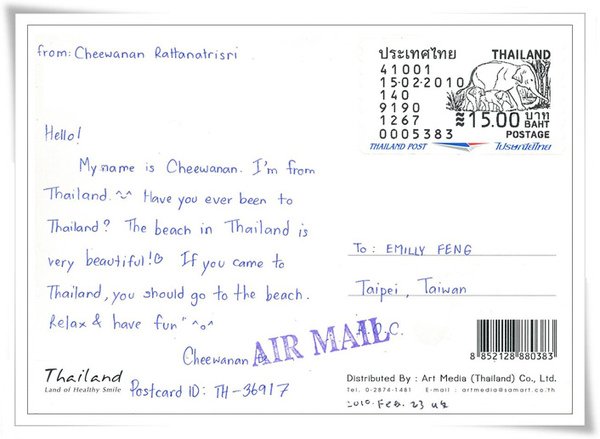 from: Cheewanan Rattanatrisri
ประเทศไทย
THAILAND
41001
15-02-2010
140
9190
1267
0005383
≈15.00 บาท
BAHT
POSTAGE
THAILAND POST
ไปรษณีย์ไทย
Hello!
My name is Cheewanan. I'm from
Thailand. ^^ Have you ever been to
Thailand? The beach in Thailand is
very beautiful!♡ If you came to
Thailand, you should go to the beach.
Relax & have fun" ^o^
Cheewanan
To: EMILLY FENG
Taipei, Taiwan
R.O.C.
AIR MAIL
Thailand
Land of Healthy Smile
Postcard ID: TH-36917
8 852128 880383
Distributed By : Art Media (Thailand) Co., Ltd.
Tel. 0-2874-1481 E-mail : artmedia@samart.co.th
2010. Feb. 23